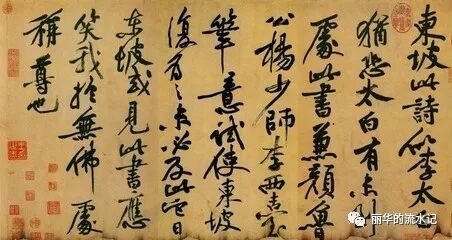 東坡此詩似李太白
猶恐太白有未到
處此書兼顏魯
公楊少師李西臺
筆意試使東坡
復為之未必及此它日
東坡或見此書應
笑我於無佛處
稱尊也
丽华的流水记